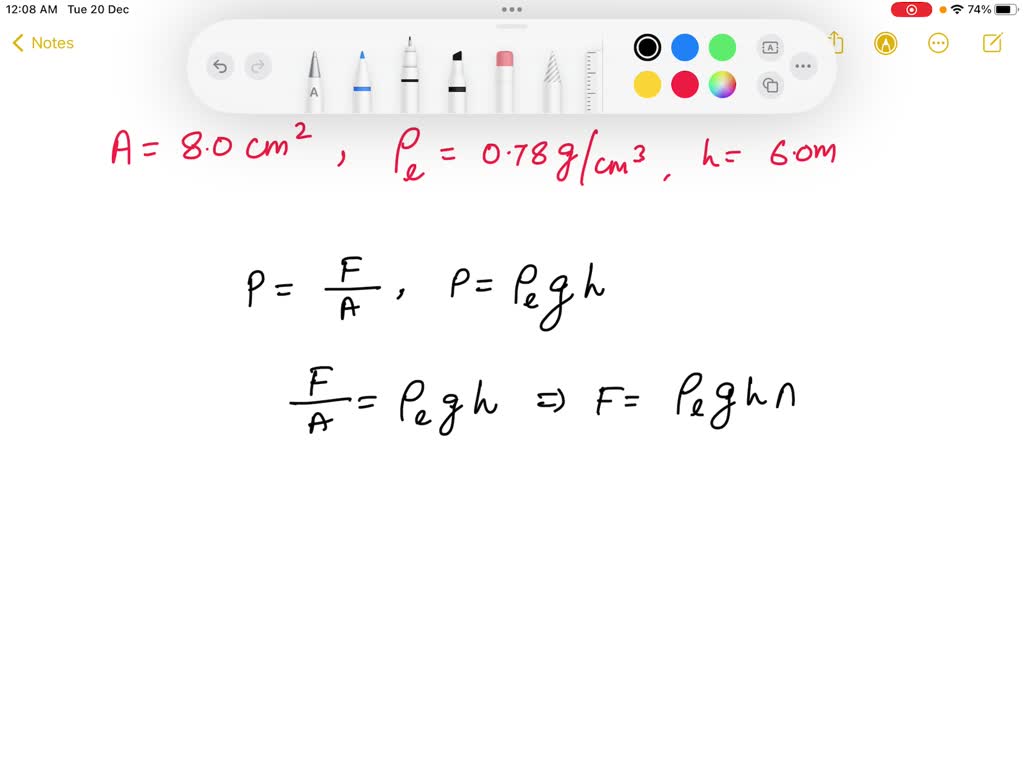 12:08 AM Tue 20 Dec 74%
Notes
A
A
A = 8.0 cm², ρe = 0.78 g/cm³, h = 6.0m
P = F/A, P = ρe g h
F/A = ρe g h ⇒ F = ρe g h n